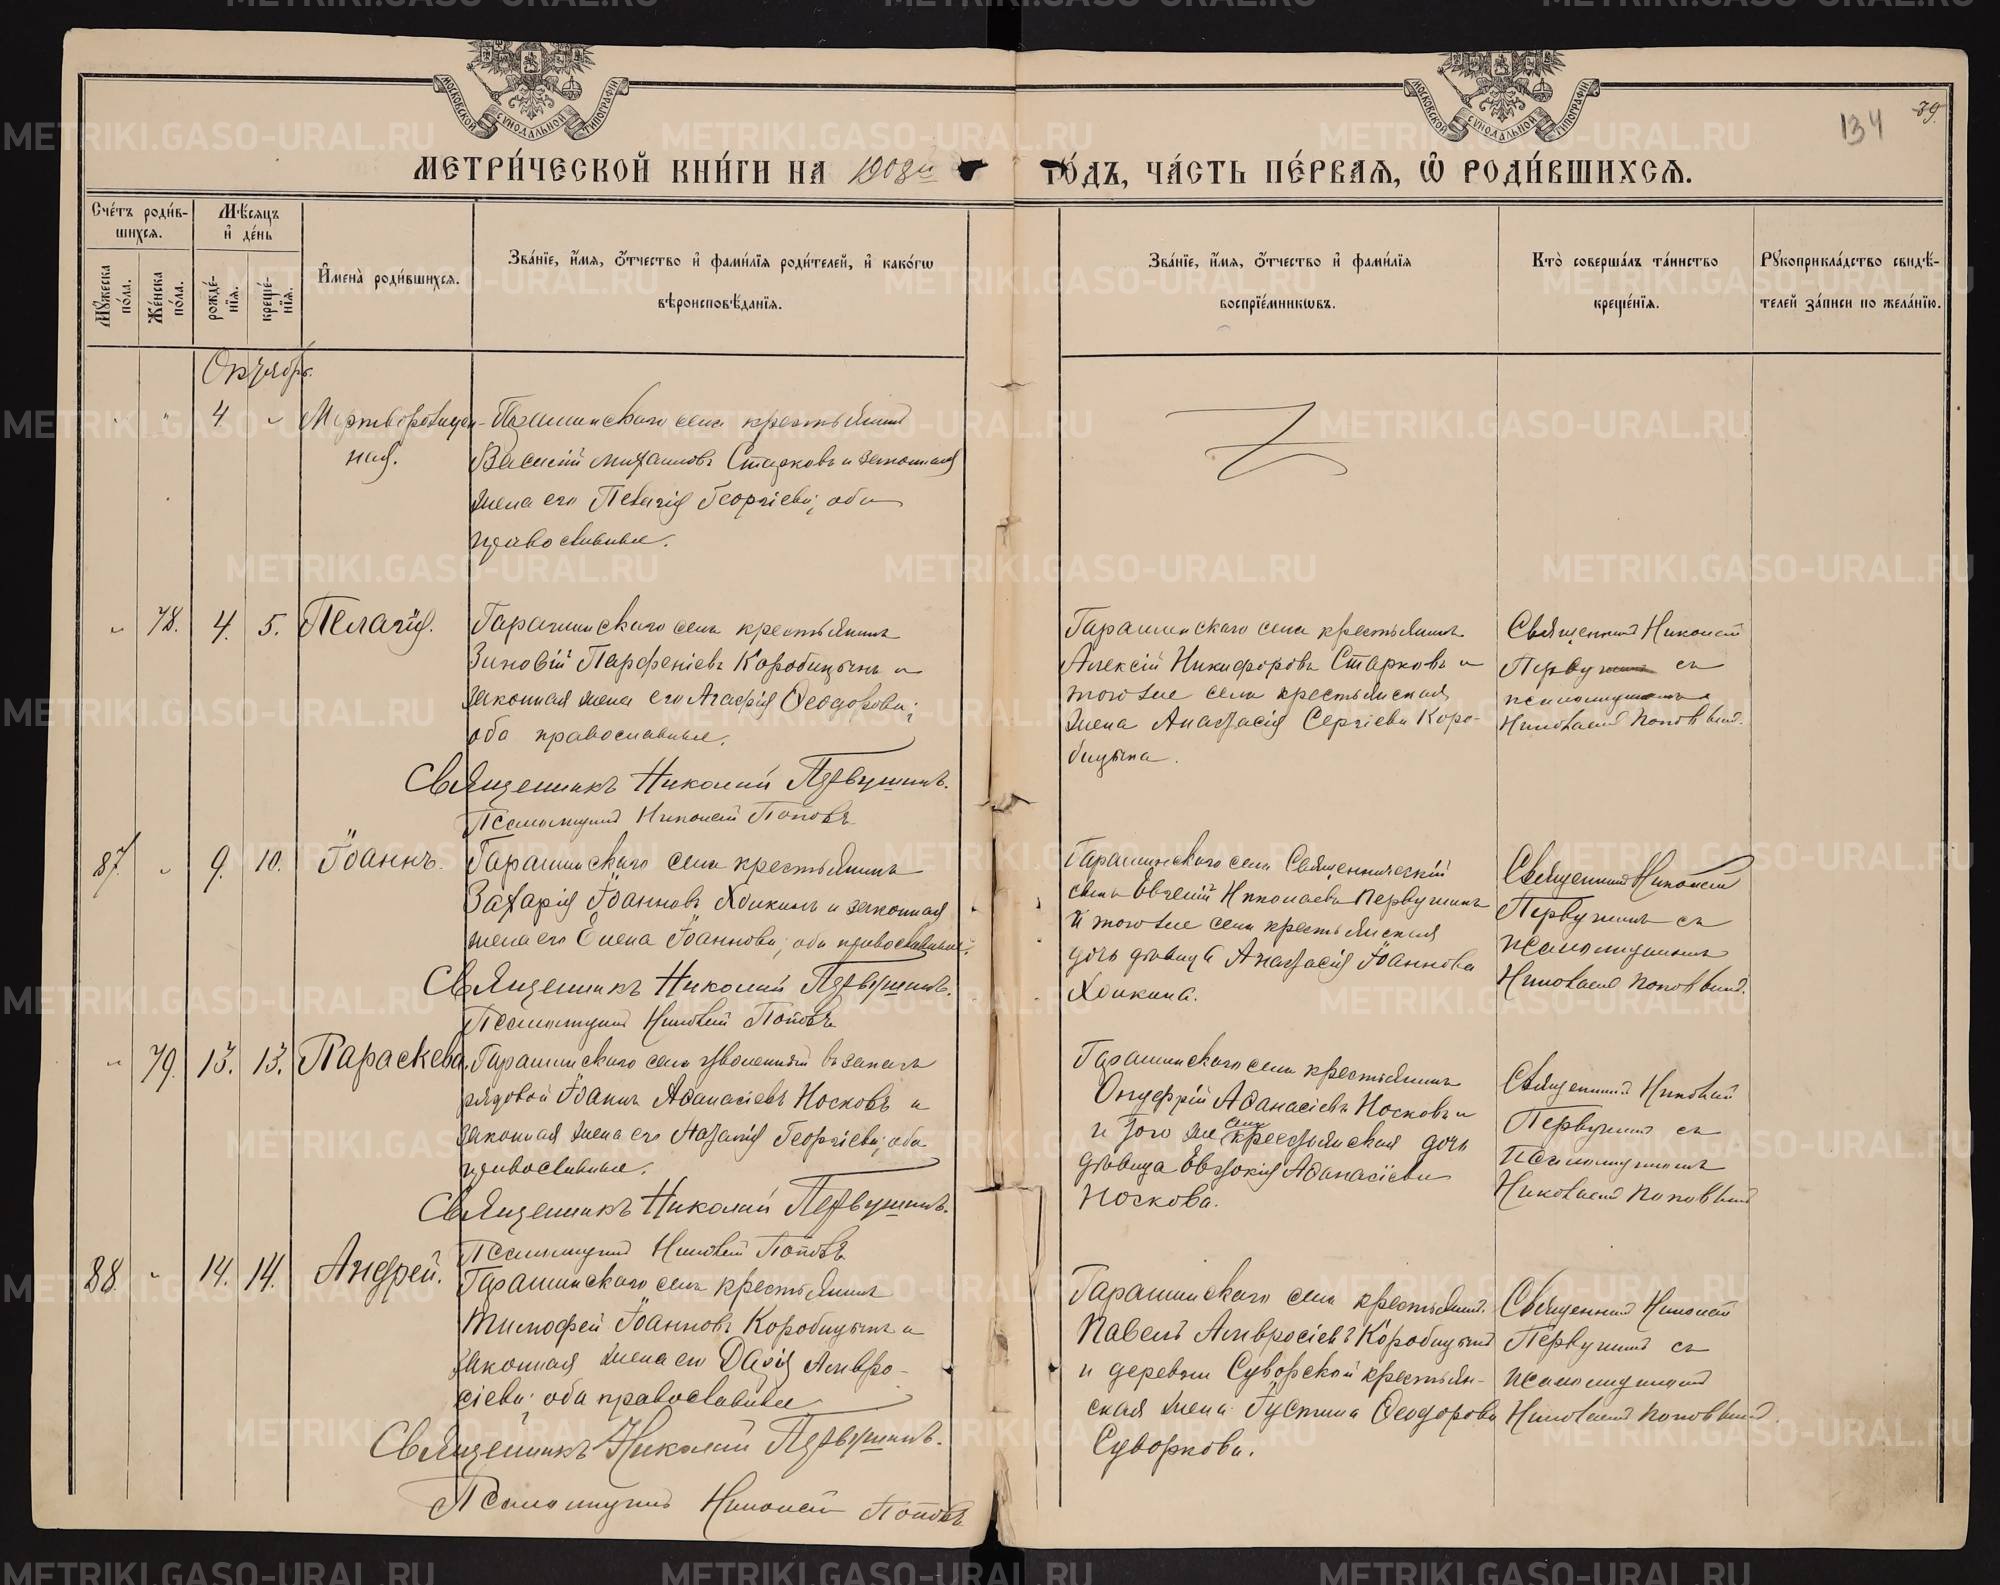 МОСКОВСКОЙ СѴНОДАЛЬНОЙ ТИПОГРАФІИ
МОСКОВСКОЙ СѴНОДАЛЬНОЙ ТИПОГРАФІИ
134
39.
МЕТРИ́ЧЕСКОЙ КНИ́ГИ НА 1908й
ГО́ДЪ, ЧА́СТЬ ПЕ́РВАѦ, Ѡ҆ РОДИ́ВШИХСѦ.
Сче́тъ роди́в-
шихсѧ.
Мꙋ́жеска по́ла.
Же́нска по́ла.
Мѣ́сѧцъ
и҆ де́нь
рожде́-
нїѧ.
креще́-
нїѧ.
И҆мена̀ роди́вшихсѧ.
Зва́нїе, и҆́мѧ, ѻ҆́тчество и҆ фами́лїѧ роди́телей, и҆ како́гѡ
вѣроисповѣ́данїѧ.
Зва́нїе, и҆́мѧ, ѻ҆́тчество и҆ фами́лїѧ
воспрїе́мникѡвъ.
Кто̀ соверша́лъ та́инство
креще́нїѧ.
Рꙋкоприкла́дство свидѣ́-
телей за́писи по жела́нїю.
Октябрь.
4 Мертворожден-
ная.
Гарашинскаго села крестьянинъ
Василій Михаиловъ Старковъ и законная
жена его Пелагія Георгіева; оба
православные.
78. 4. 5. Пелагія.
Гарашинскаго села крестьянинъ
Зиновій Парфеніевъ Коробицынъ и
законная жена его Агафія Ѳеодорова;
оба православные.
Священникъ Николай Первушинъ.
Псаломщикъ Николай Поповъ
Гарашинскаго села крестьянинъ
Алексій Никифоровъ Старковъ и
того же села крестьянская
жена Анастасія Сергіева Коро-
бицына.
Священникъ Николай
Первушинъ съ
псаломщикомъ
Николаемъ Поповымъ.
87. 9. 10. Іоаннъ.
Гарашинскаго села крестьянинъ
Захарія Іоанновъ Хоикинъ и законная
жена его Елена Іоаннова; оба православные.
Священникъ Николай Первушинъ.
Псаломщикъ Николай Поповъ
Гарашинскаго села Священническій
сынъ Евгеній Николаевъ Первушинъ
и того же села крестьянская
дочь дѣвица Анастасія Іоаннова
Хоикина.
Священникъ Николай
Первушинъ съ
псаломщикомъ
Николаемъ Поповымъ.
79. 13. 13. Параскева.
Гарашинскаго села уволенный въ запасъ
рядовой Іоаннъ Аѳанасіевъ Носковъ и
законная жена его Наталія Георгіева; оба
православные.
Священникъ Николай Первушинъ.
Псаломщикъ Николай Поповъ
Гарашинскаго села крестьянинъ
Онуфрій Аѳанасіевъ Носковъ и
и того же села крестьянская дочь
дѣвица Евдокія Аѳанасіева
Носкова.
Священникъ Николай
Первушинъ съ
Псаломщикомъ
Николаемъ Поповымъ
88. 14. 14. Андрей.
Гарашинскаго села крестьянинъ
Тимофей Іоанновъ Коробицынъ и
законная жена его Дарія Амвро-
сіева; оба православные
Священникъ Николай Первушинъ.
Псаломщикъ Николай Поповъ
Гарашинскаго села крестьянинъ
Павелъ Амвросіевъ Коробицынъ
и деревни Суворской крестьян-
ская жена Іустина Ѳеодорова
Суворкова.
Священникъ Николай
Первушинъ съ
псаломщикомъ
Николаемъ Поповымъ.
METRIKI.GASO-URAL.RU